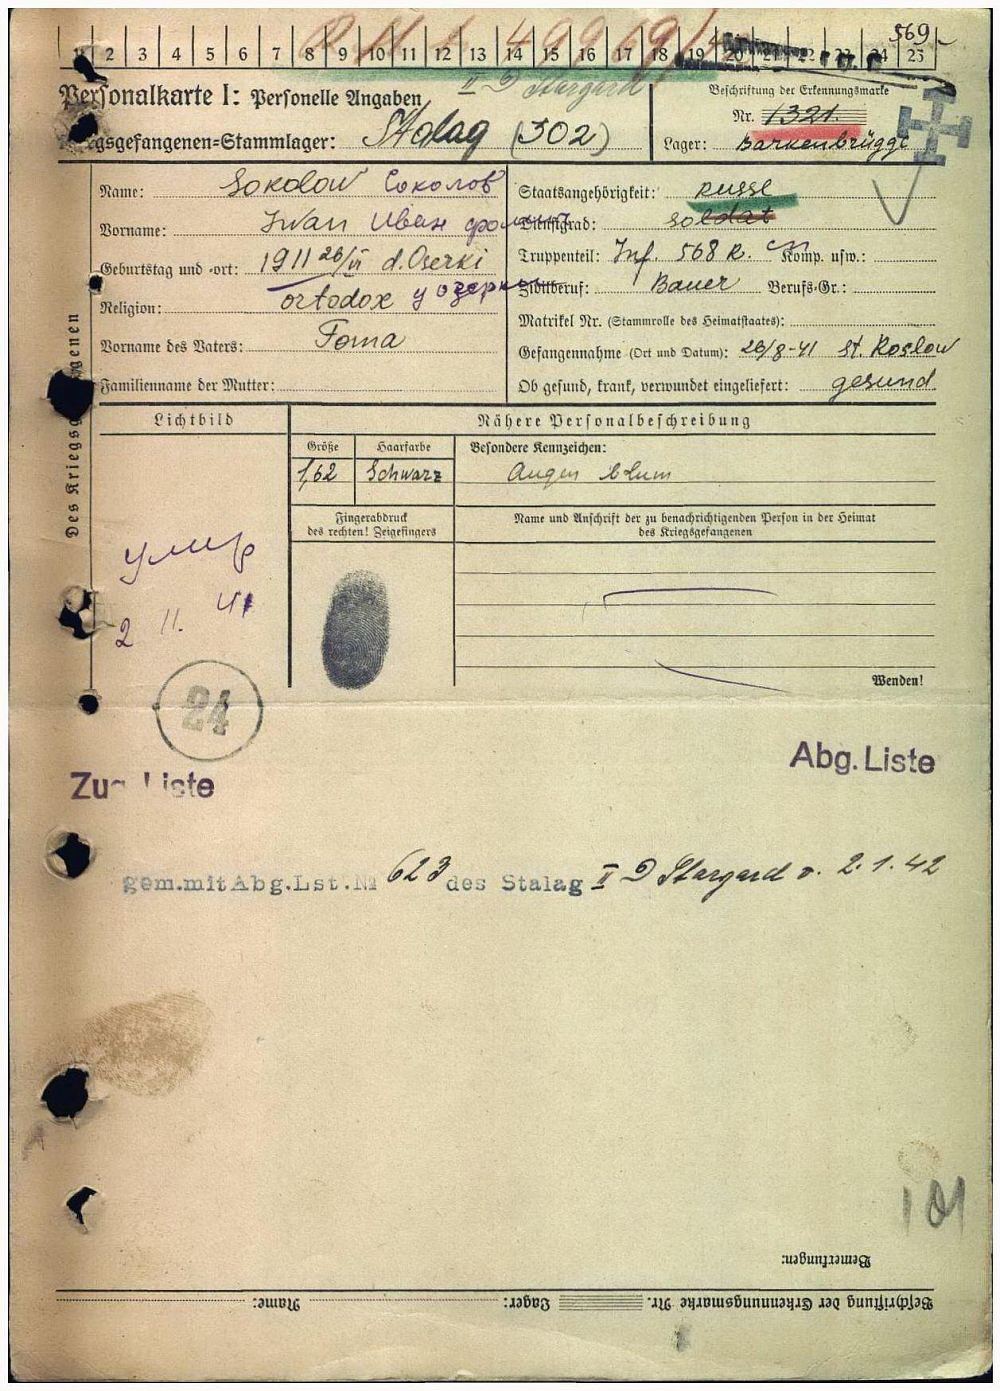 569
1 2 3 4 5 6 7 8 9 10 11 12 13 14 15 16 17 18 19 20 21 22 23 24 25
II D Stargard
Personalkarte I: Personelle Angaben
Kriegsgefangenen-Stammlager: Stalag (302)
Beschriftung der Erkennungsmarke
Nr. 1321.
Lager: Barkenbrügge
Des Kriegsgefangenen
Name: Sokolow Соколов
Vorname: Iwan Иван
Geburtstag und -ort: 1911 26/VI d. Oserki
Religion: ortodox
Vorname des Vaters: Foma
Familienname der Mutter:
Staatsangehörigkeit: Russe
Dienstgrad: Soldat
Truppenteil: Inf. 568 R. Komp. usw.:
Zivilberuf: Bauer Berufs-Gr.:
Matrikel Nr. (Stammrolle des Heimatstaates):
Gefangennahme (Ort und Datum): 26/8-41 St. Koslow
Ob gesund, krank, verwundet eingeliefert: gesund
Lichtbild
Nähere Personalbeschreibung
Größe
Haarfarbe
Besondere Kennzeichen:
1,62
Schwarz
Augen
Fingerabdruck
des rechten! Zeigefingers
Name und Anschrift der zu benachrichtigenden Person in der Heimat
des Kriegsgefangenen
умер
2 11. 41
Wenden!
24
Zug. Liste
Abg. Liste
gem.mit Abg.Lst.№ 623 des Stalag II D Stargard v. 2.1.42
101
Bemerkungen:
Beschriftung der Erkennungsmarke Nr. Lager: Name: